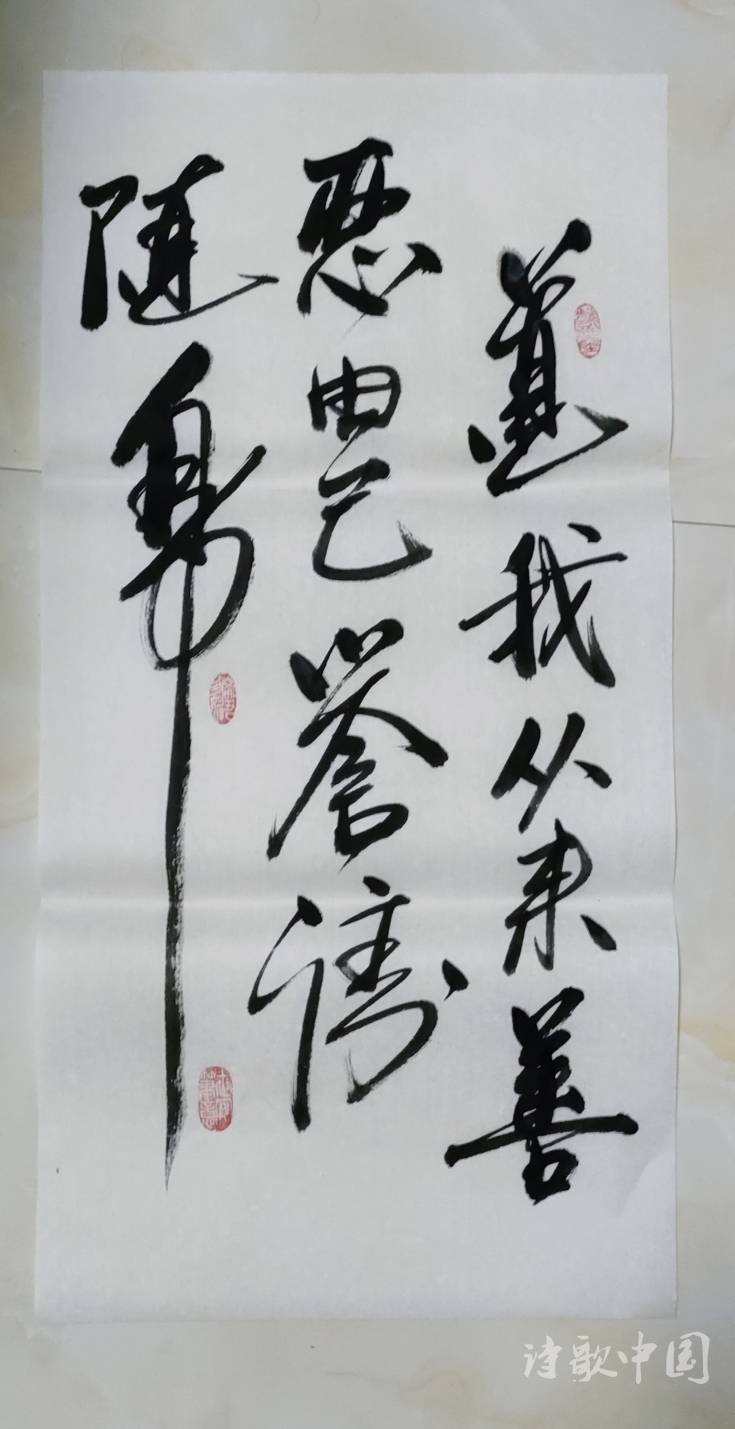 道我从来善
恶由己誉谤
随身
诗歌中国